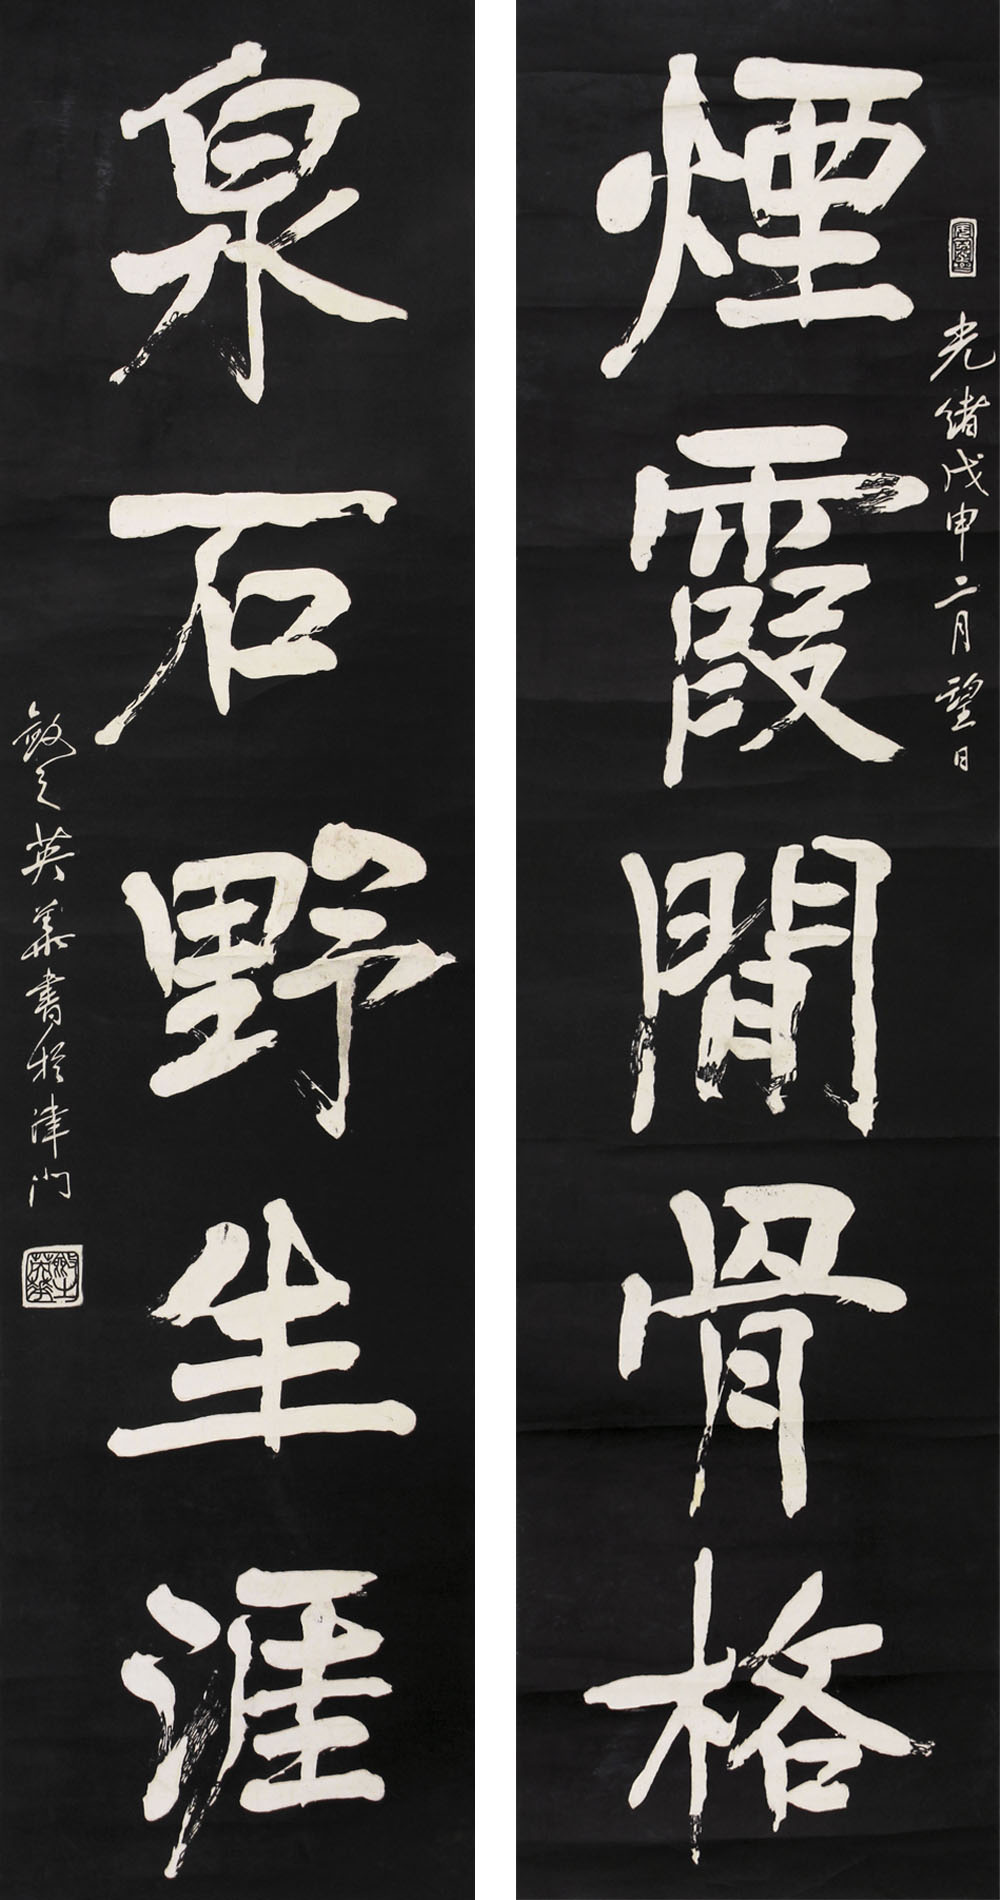 光緒戊申二月望日
煙霞閒骨格
泉石野生涯
斂之英華書於津門